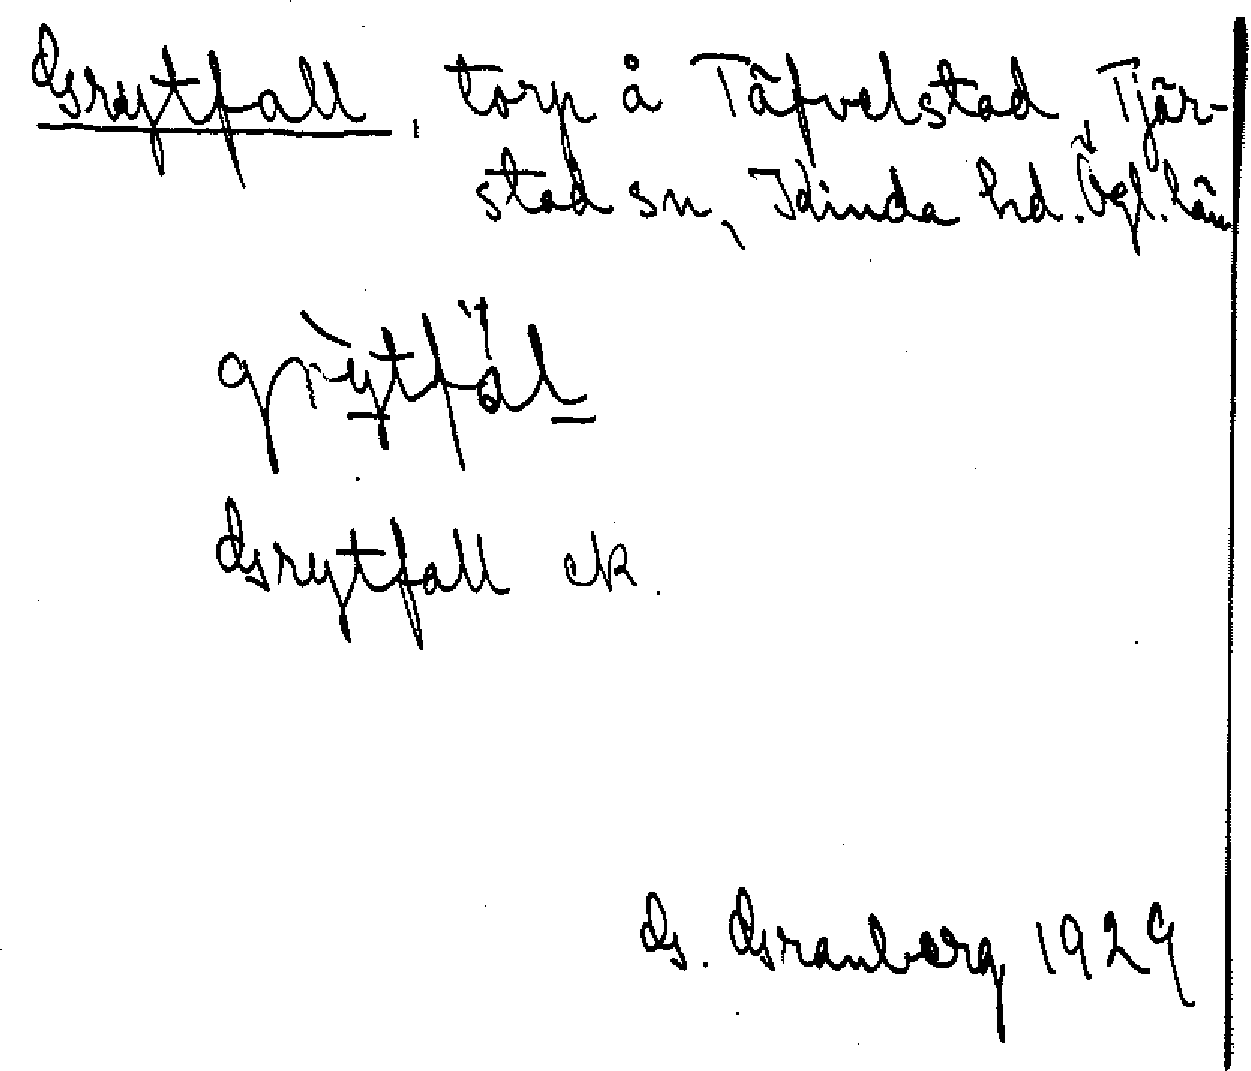 Grytfall, torp å Täfvelstad, Tjär-
stad sn, Kinda hd. Ögl. län
grỳtfàl
Grytfall ek.
G. Granberg 1929